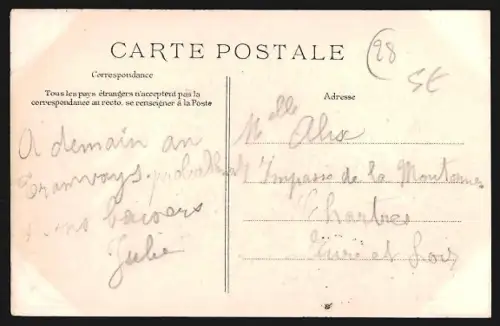 CARTE POSTALE
28
SE
Correspondance
Tous les pays étrangers n'acceptent pas la
correspondance au recto. se renseigner à la Poste
Adresse
A demain au
Tramways
baisers
Julie
Melle Alix
Impasse de la Montonne
Chartres
Eure et Loir